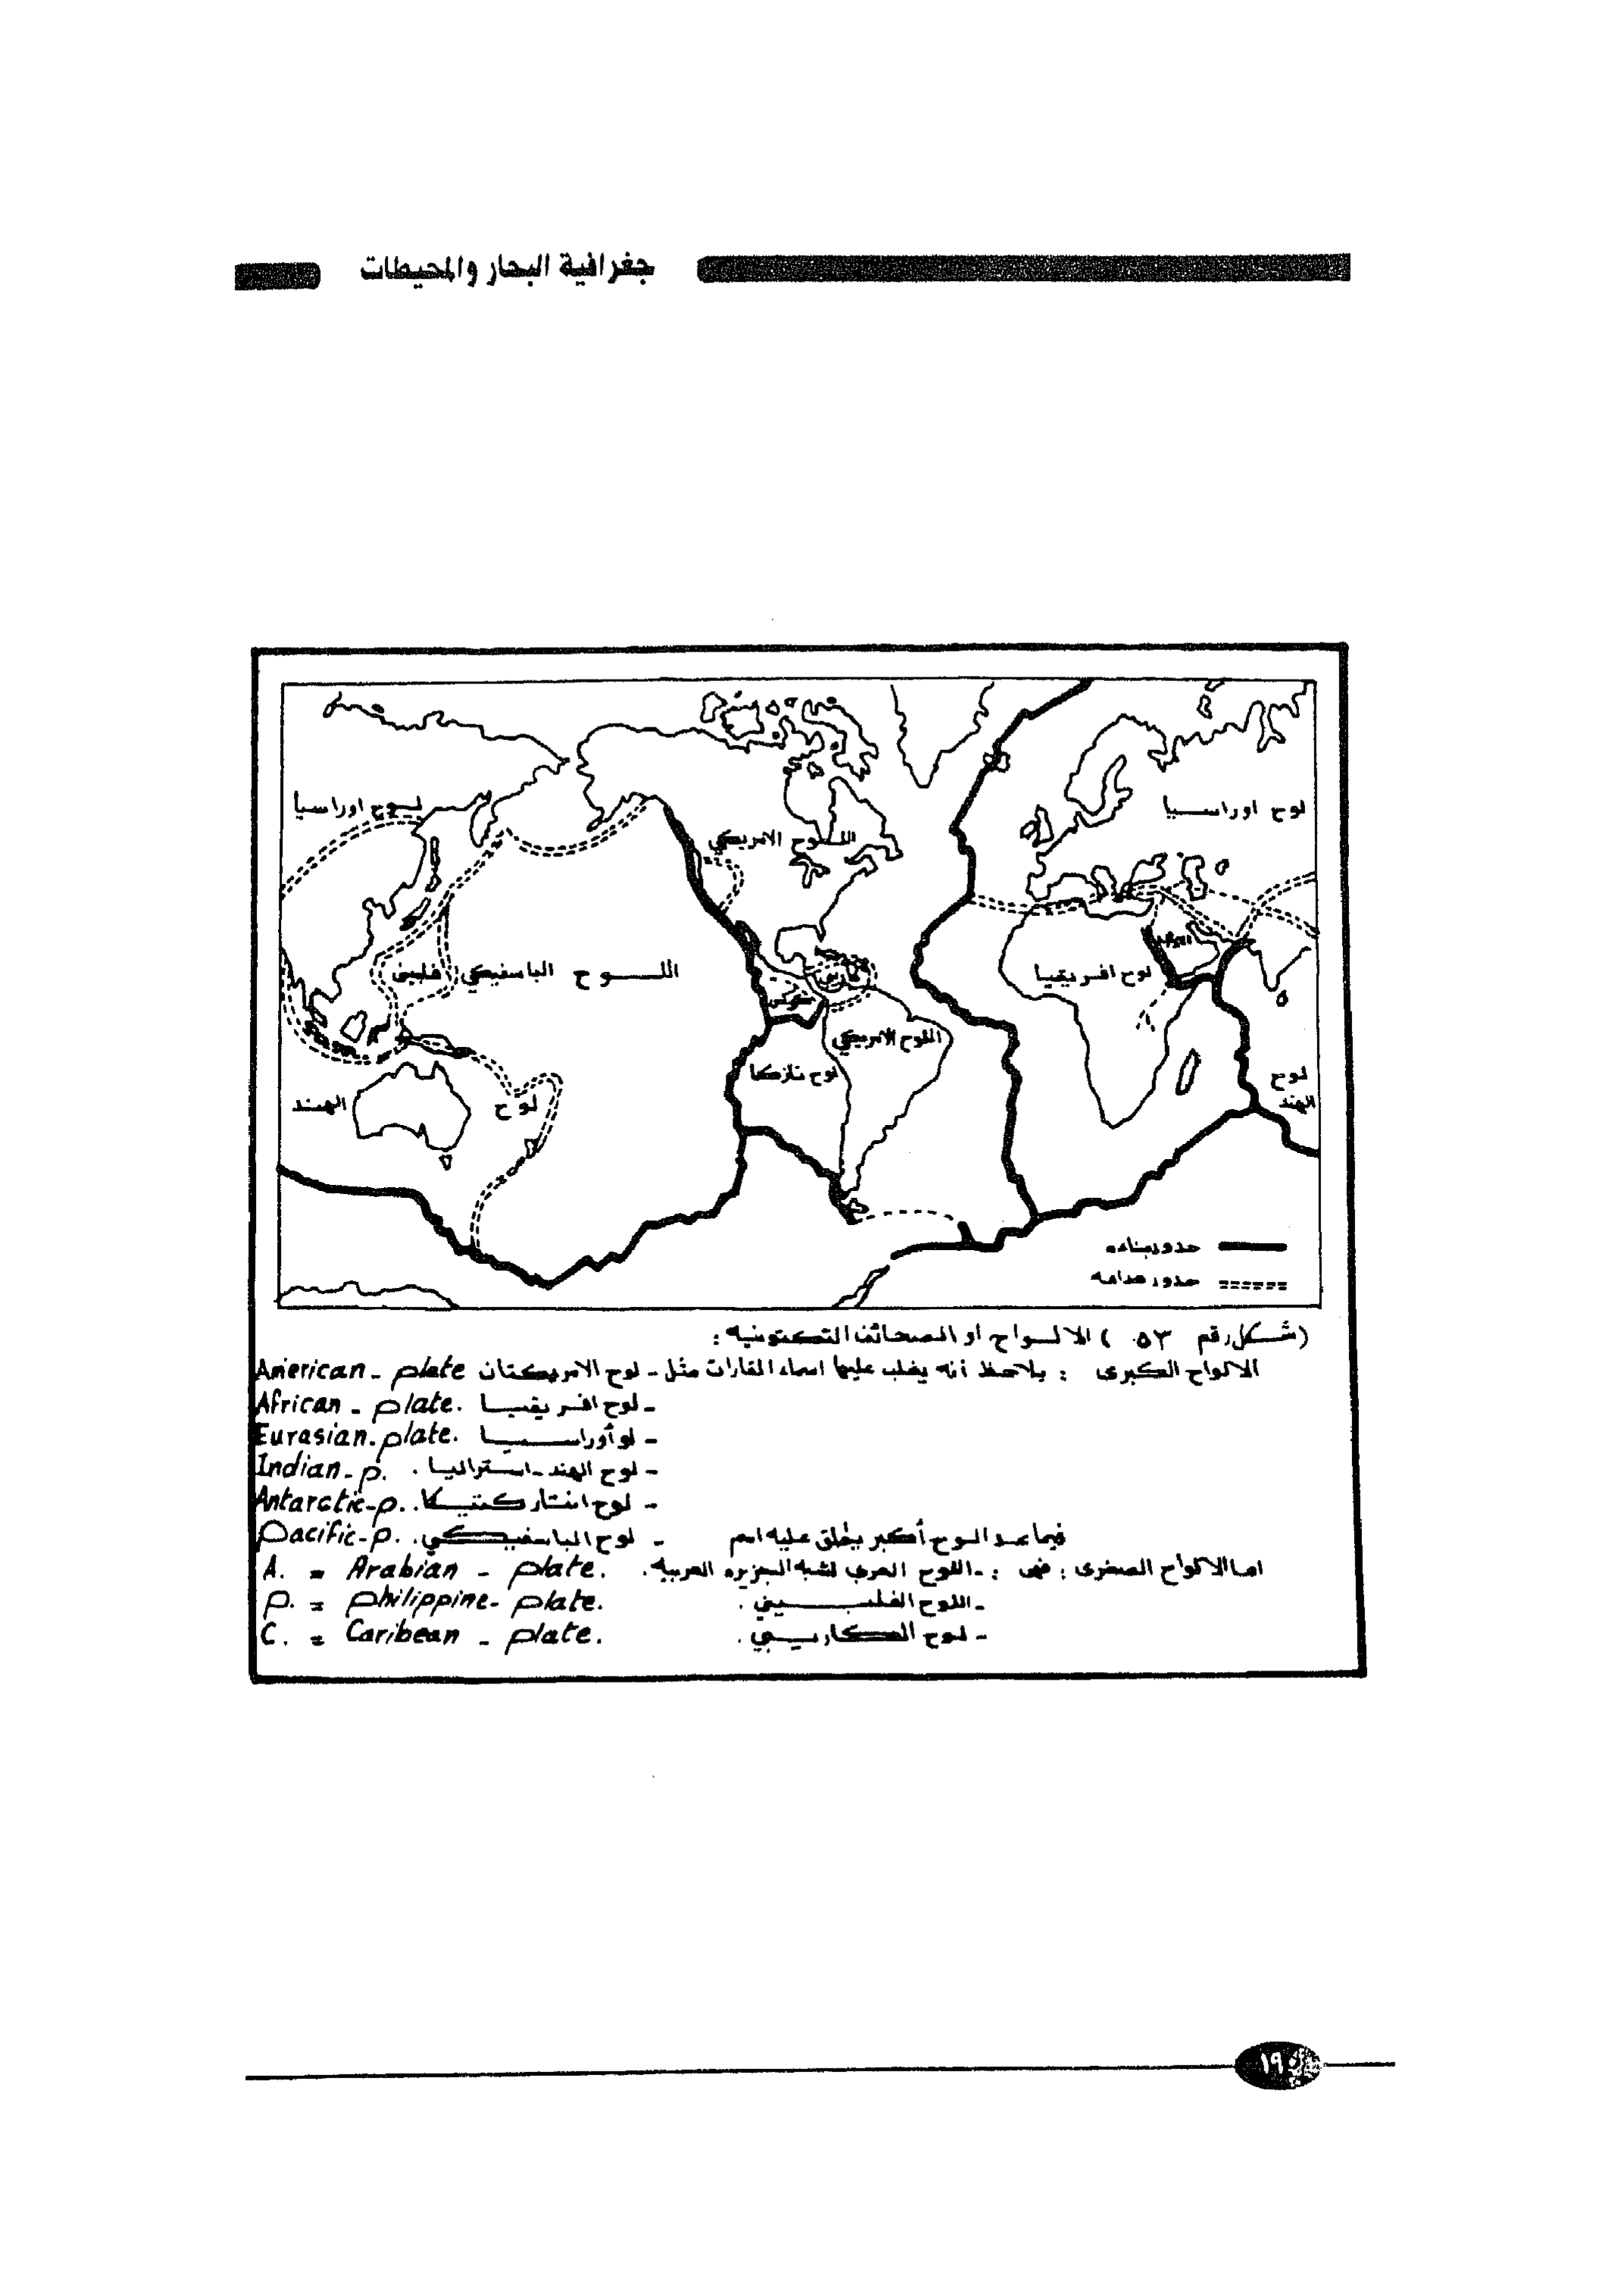 جغرافية البحار والمحيطات
لوح اوراسيا
اللوح الامريكي
لوح اوراسيا
اللوح الباسفيكي
فلبين
كاريبي
كوكس
لوح افريقيا
اللوح الامريكي
لوح نازكا
لوح
الهند
لوح
الهند
حدود بناءه
حدود هدامه
(شكل رقم ٥٣ ) الالواح او الصحائف التكتونيه :
الالواح الكبرى : يلاحظ أنه يغلب عليها اسماء القارات مثل - لوح الامريكتان American - plate
- لوح افريقيا African - plate.
- لو أوراسيا Eurasian - plate.
- لوح الهند - استراليا . Indian - p.
- لوح انتاركتيكا . Antarctic - p.
فيما عدا لوح أكبر يطلق عليه اسم - لوح الباسفيكي . Pacific - p.
اما الالواح الصغرى : فهى : - اللوح العربي لشبه الجزيره العربيه . A. = Arabian - plate.
- اللوح الفلبيني . P. = philippine - plate.
- لوح الكاريبي . C. = Caribean - plate.
١٩٠